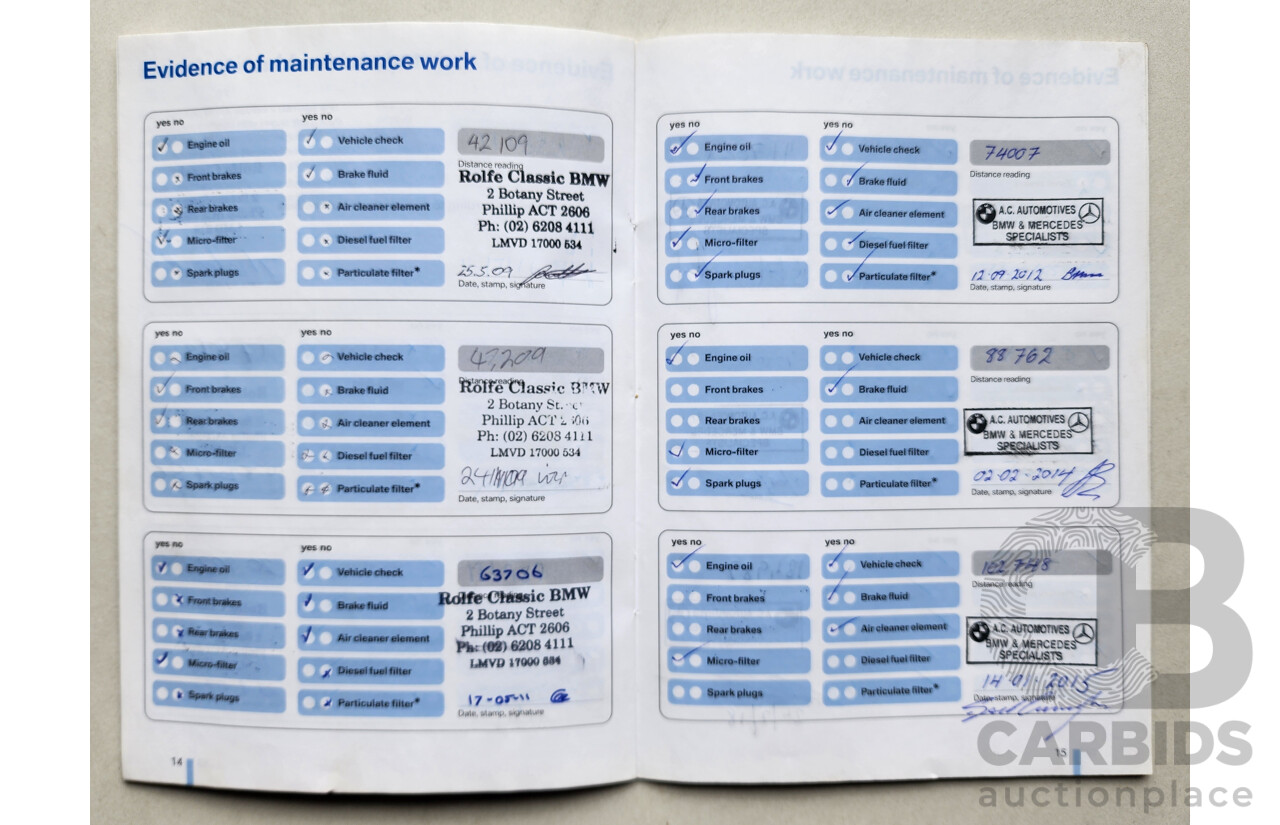 Evidence of maintenance work
yes no
yes no
Engine oil
Vehicle check
42 109
Distance reading
Front brakes
Brake fluid
Rolfe Classic BMW
2 Botany Street
Rear brakes
Air cleaner element
Phillip ACT 2606
Ph: (02) 6208 4111
Micro-filter
Diesel fuel filter
LMVD 17000 534
Spark plugs
Particulate filter*
25.5.09
Date, stamp, signature
yes no
yes no
Engine oil
Vehicle check
47,209
Distance reading
Front brakes
Brake fluid
Rolfe Classic BMW
2 Botany St
Rear brakes
Air cleaner element
Phillip ACT 2606
Ph: (02) 6208 4111
Micro-filter
Diesel fuel filter
LMVD 17000 534
Spark plugs
Particulate filter*
Date, stamp, signature
yes no
yes no
Engine oil
Vehicle check
63706
Front brakes
Brake fluid
Rolfe Classic BMW
2 Botany Street
Rear brakes
Air cleaner element
Phillip ACT 2606
Ph: (02) 6208 4111
Micro-filter
Diesel fuel filter
LMVD 17000 534
Spark plugs
Particulate filter*
Date, stamp, signature
14
yes no
yes no
Engine oil
Vehicle check
74007
Distance reading
Front brakes
Brake fluid
Rear brakes
Air cleaner element
A.C. AUTOMOTIVES
BMW & MERCEDES
SPECIALISTS
Micro-filter
Diesel fuel filter
Spark plugs
Particulate filter*
12.09.2012
Date, stamp, signature
yes no
yes no
Engine oil
Vehicle check
88 762
Distance reading
Front brakes
Brake fluid
Rear brakes
Air cleaner element
A.C. AUTOMOTIVES
BMW & MERCEDES
SPECIALISTS
Micro-filter
Diesel fuel filter
Spark plugs
Particulate filter*
02-02-2014
Date, stamp, signature
yes no
yes no
Engine oil
Vehicle check
Distance reading
Front brakes
Brake fluid
Rear brakes
Air cleaner element
A.C. AUTOMOTIVES
BMW & MERCEDES
SPECIALISTS
Micro-filter
Diesel fuel filter
Spark plugs
Particulate filter*
14 01 2015
Date, stamp, signature
15
CARBIDS
auctionplace